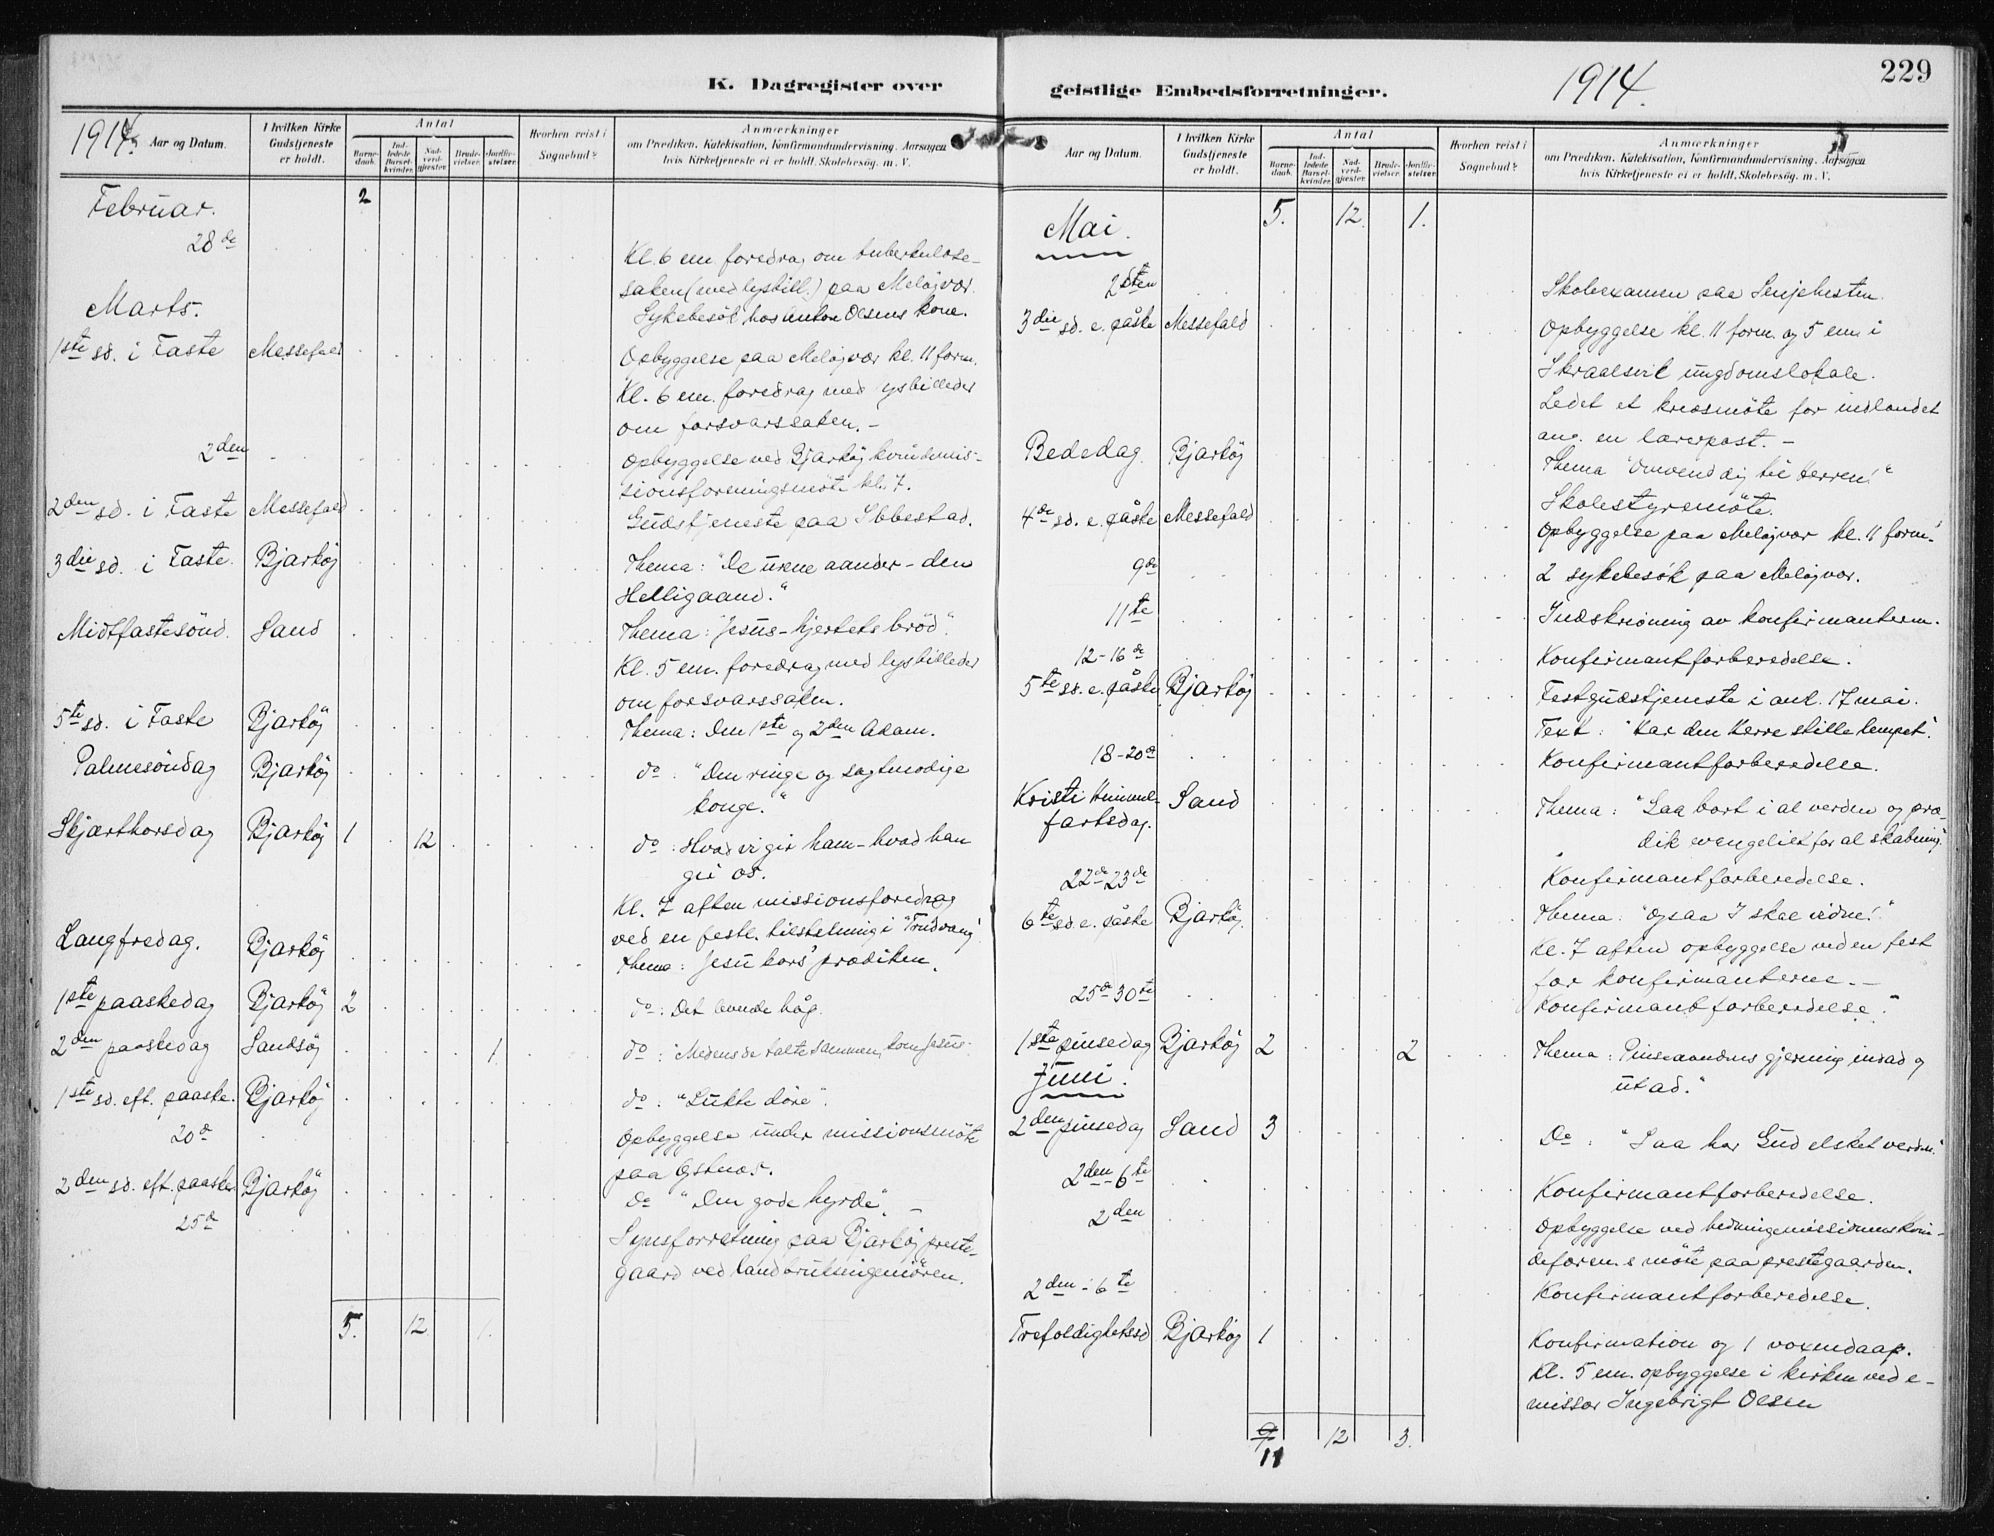 K. Dagregister over
1914
Aar og Datum.
I hvilken Kirke Gudstjeneste er holdt.
Antal
Barnedaab.
Indledede Barselkvinder.
Nadverdgjæster.
Brudevielser.
Jordfæstelser.
Hvorhen reist i Sognebud?
Anmærkninger
om Prædiken. Katekisation, Konfirmandundervisning. Aarsagen
hvis Kirketjeneste ei er holdt. Skolebesøg. m. V.
Februar. 2
28de Kl. 6 em. foredrag om tuberkulose-
saken (med lysbill.) paa Meløjvær.
Sykebesök hos Anton Olsens kone.
Marts.
1ste sd. i Faste Messefald Opbyggelse paa Meløjvær kl. 11 form.
Kl. 6 em. foredrag med lysbilleder
om forsvarssaken. -
2den Opbyggelse ved Bjarköj kvindemis-
sionsforeningsmöte kl. 7.
2den sd. i Faste Messefald Gudstjeneste paa Ibbestad.
3die sd. i Faste. Bjarköj Thema: "De urene aander - den
Helligaand."
Midtfastesönd. Sand Thema: "Jesus - hjertets bröd".
Kl. 5 em. foredrag med lysbilleder
om forsvarssaken.
5te sd. i Faste Bjarköj Thema: Den 1ste og 2den Adam.
Palmesöndag Bjarköj do: "Den ringe og sagtmodige
konge."
Skjærthorsdag Bjarköj 1 12 do: Hvad vi gir ham - hvad han
gir os.
Kl. 7 aften missionsforedrag
ved en festl. tilstelning i "Trudvang".
Langfredag. Bjarköj Thema: Jesu kors' prædiken.
1ste paaskedag Bjarköj 2 do: Det levende håp.
2den paaskedag Sandsöj 1. do: "Medens de talte sammen, kom Jesus".
1ste sd. eft. paaske. Bjarköj do: "Lukte döre".
20de Opbyggelse under missionsmöte
paa Östnes.
2den sd. eft. paaske Bjarköj do "Den gode hyrde". -
25de Synsforretning paa Bjarköj preste-
gaard ved landbruksingeniören.
5. 12 1.
geistlige Embedsforretninger.
1914.
229
Aar og Datum.
I hvilken Kirke Gudstjeneste er holdt.
Antal
Barnedaab.
Indledede Barselkvinder.
Nadverdgjæster.
Brudevielser.
Jordfæstelser.
Hvorhen reist i Sognebud?
Anmærkninger
om Prædiken. Katekisation, Konfirmandundervisning. Aarsagen
hvis Kirketjeneste ei er holdt. Skolebesøg. m. V.
Mai. 5. 12 1.
2den Skoleexamen paa Senjehesten.
3die sd. e. påske Messefald Opbyggelse kl. 11 form. og 5 em. i
Skraalsvik ungdomslokale.
Ledet et kredsmöte for indlandet
ang. en lærerpost. -
Bededag Bjarköj Thema "Omvend dig til Herren!"
Skolestyremöte.
4de sd. e. påske Messefald Opbyggelse paa Meløjvær kl. 11 form.
9de 2 sykebesök paa Meløjvær.
11te Indskrivning av konfirmanterne.
12-16de Konfirmantforberedelse.
5te sd. e. påske Bjarköj Festgudstjeneste i anl. 17 mai.
Text: "Kar den Herre stille tempet".
18-20de Konfirmantforberedelse.
Kristi Himmel-
fartsdag. Sand Thema: "Gaa bort i al verden og præ-
dik evangeliet for al skabning".
22de 23de Konfirmantforberedelse.
6te sd. e. påske Bjarköj. Thema: "Ogsaa I skal vidne!"
Kl. 7 aften opbyggelse ved en fest
for konfirmanterne. -
25de 30te Konfirmantforberedelse.
1ste pinsedag Bjarköj 2 2 Thema: Pinseaandens gjerning indad og
utad."
Juni.
2den pinsedag Sand 3 Do: "Saa har Gud elsket verden".
2den-6te Konfirmantforberedelse.
2den Opbyggelse ved hedningemissionens kvin-
deforen.s möte paa prestegaarden.
2den - 6te Konfirmantforberedelse.
Trefoldighetssd Bjarköj 1 Konfirmation og 1 voxendaap.
Kl. 5 em. opbyggelse i kirken ved e-
missær Ingebrigt Olsen
9 12 3.
11